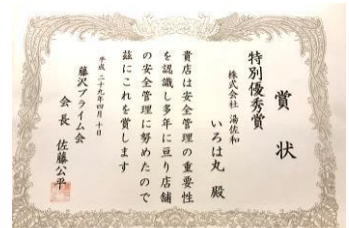 賞状
特別優秀賞
株式会社 湯佐和
いろは丸 殿
貴店は安全管理の重要性
を認識し多年に亘り店舗
の安全管理に努めたので
茲にこれを賞します
平成二十九年四月十日
藤沢プライム会
会長 佐藤公平